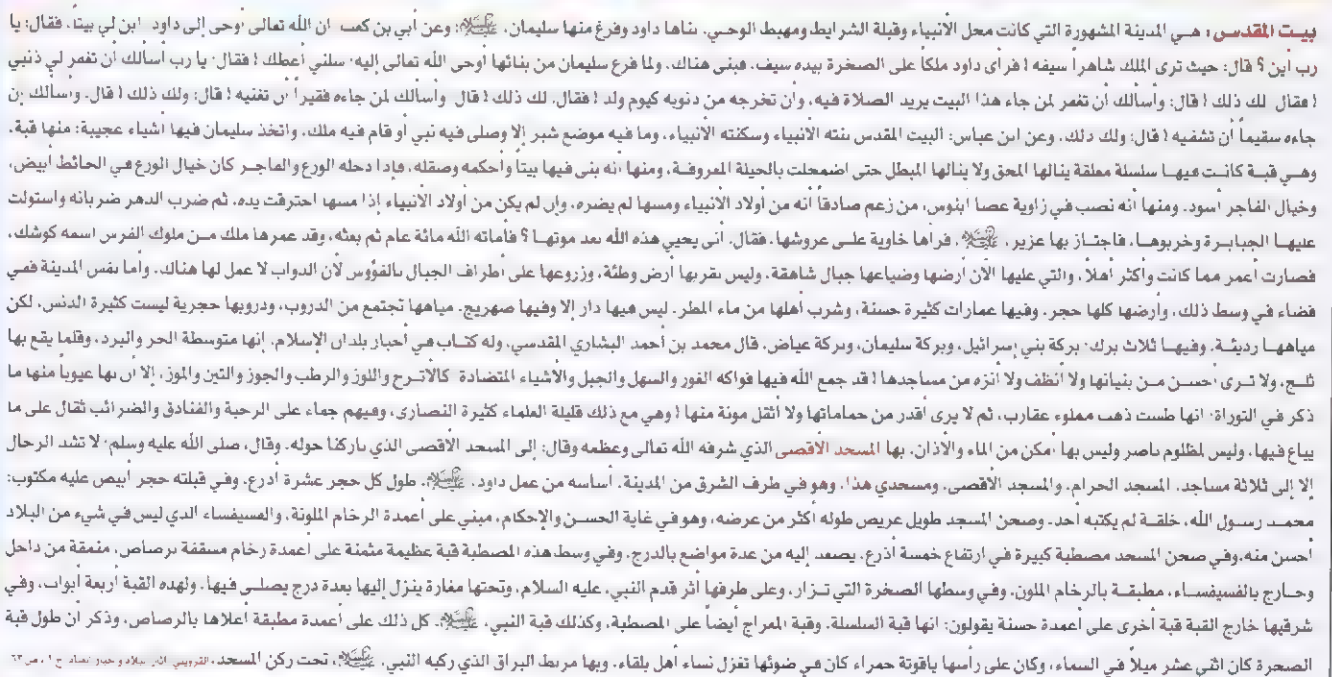 بيت المقدس، هي المدينة المشهورة التي كانت محل الأنبياء وقبلة الشرايط ومهبط الوحي. بناها داود وفرغ منها سليمان، عليه السلام: وعن أبي بن كعب أن الله تعالى أوحى إلى داود ابن لي بيتا. فقال: يا
رب اين ؟ قال: حيث ترى الملك شاهراً سيفه ! فرأى داود ملكاً على الصخرة بيده سيف، فبنى هناك. ولما فرغ سليمان من بنائها أوحى الله تعالى إليه: سلني أعطك ! فقال: يا رب أسألك أن تغفر لي ذنبي
! فقال لك ذلك ! قال: وأسألك أن تغفر لمن جاء هذا البيت يريد الصلاة فيه، وأن تخرجه من ذنوبه كيوم ولد ! فقال. لك ذلك ! قال وأسألك لمن جاءه فقيراً أن تغنيه ! قال: ولك ذلك ! قال. وأسألك إن
جاءه سقيماً أن تشفيه ! قال: ولك ذلك. وعن ابن عباس: البيت المقدس بنته الأنبياء وسكنته الأنبياء، وما فيه موضع شبر إلا وصلى فيه نبي أو قام فيه ملك. واتخذ سليمان فيها أشياء عجيبة: منها قبة.
وهي قبة كانت فيها سلسلة معلقة ينالها المحق ولا ينالها المبطل حتى اضمحلت بالحيلة المعروفة، ومنها أنه بنى فيها بيتا وأحكمه وصقله، فإذا دخله الورع والفاجر كان خيال الورع في الحائط أبيض،
وخيال الفاجر أسود. ومنها أنه نصب في زاوية عصا أبنوس، من زعم صادقاً أنه من أولاد الأنبياء ومسها لم يضره، وإن لم يكن من أولاد الأنبياء إذا مسها احترقت يده. ثم ضرب الدهر ضربانه واستولت
عليها الجبابرة وخربوها، فاجتاز بها عزير، عليه السلام، فرآها خاوية على عروشها، فقال. أنى يحيي هذه الله بعد موتها ؟ فأماته الله مائة عام ثم بعثه، وقد عمرها ملك من ملوك الفرس اسمه كوشك،
فصارت أعمر مما كانت وأكثر أهلاً، والتي عليها الآن أرضها وضياعها جبال شاهقة، وليس بقربها أرض وطئة، وزروعها على أطراف الجبال بالفؤوس لأن الدواب لا عمل لها هنالك. وأما نفس المدينة ففي
فضاء في وسط ذلك، وأرضها كلها حجر. وفيها عمارات كثيرة حسنة، وشرب أهلها من ماء المطر. ليس فيها دار إلا وفيها صهريج. مياهها تجتمع من الدروب، ودروبها حجرية ليست كثيرة الدنس، لكن
مياهها رديئة. وفيها ثلاث برك: بركة بني إسرائيل، وبركة سليمان، وبركة عياض. قال محمد بن أحمد البشاري المقدسي، وله كتاب في أخبار بلدان الإسلام، إنها متوسطة الحر والبرد، وقلما يقع بها
ثلج، ولا ترى أحسن من بنيانها ولا أنظف ولا أنزه من مساجدها ! قد جمع الله فيها فواكه الغور والسهل والجبل والأشياء المتضادة كالأترج واللوز والرطب والجوز والتين والموز، إلا أن بها عيوباً منها ما
ذكر في التوراة: إنها طست ذهب مملوء عقارب، ثم لا يرى أقذر من حماماتها ولا أثقل مونة منها ! وهي مع ذلك قليلة العلماء كثيرة النصارى، وفيهم جماء على الرحبة والفنادق والضرائب ثقال على ما
يباع فيها، وليس لمظلوم ناصر وليس بها أمكن من الماء والأذان. بها المسجد الأقصى الذي شرفه الله تعالى وعظمه وقال: إلى المسجد الأقصى الذي باركنا حوله. وقال، صلى الله عليه وسلم: لا تشد الرحال
إلا إلى ثلاثة مساجد. المسجد الحرام، والمسجد الأقصى، ومسجدي هذا. وهو في طرف الشرق من المدينة. أساسه من عمل داود، عليه السلام، طول كل حجر عشرة أذرع، وفي قبلته حجر أبيض عليه مكتوب:
محمد رسول الله، خلقة لم يكتبه أحد. وصحن المسجد طويل عريض طوله أكثر من عرضه، وهو في غاية الحسن والإحكام، مبني على أعمدة الرخام الملونة، والفسيفساء الذي ليس في شيء من البلاد
أحسن منه، وفي صحن المسجد مصطبة كبيرة في ارتفاع خمسة أذرع، يصعد إليه من عدة مواضع بالدرج. وفي وسط هذه المصطبة قبة عظيمة مثمنة على أعمدة رخام مسقفة برصاص، منمقة من داخل
وخارج بالفسيفساء، مطبقة بالرخام الملون. وفي وسطها الصخرة التي تزار، وعلى طرفها أثر قدم النبي، عليه السلام، وتحتها مغارة ينزل إليها بعدة درج يصلى فيها. ولهذه القبة أربعة أبواب، وفي
شرقيها خارج القبة قبة أخرى على أعمدة حسنة يقولون: إنها قبة السلسلة. وقبة المعراج أيضاً على المصطبة، وكذلك قبة النبي، عليه السلام، كل ذلك على أعمدة مطبقة أعلاها بالرصاص. وذكر أن طول قبة
الصخرة كان اثني عشر ميلاً في السماء، وكان على رأسها ياقوتة حمراء كان في ضوئها تغزل نساء أهل بلقاء. وبها مربط البراق الذي ركبه النبي، عليه السلام، تحت ركن المسجد.